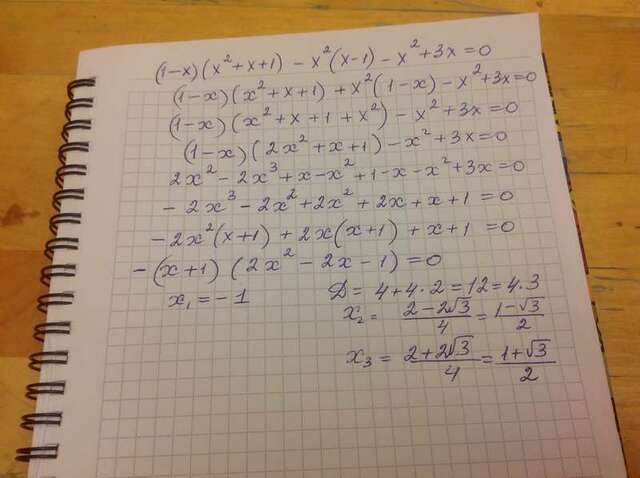 (1-x)(x²+x+1) - x²(x-1) - x²+3x=0
(1-x)(x²+x+1)+x²(1-x)-x²+3x=0
(1-x)(x²+x+1+x²)-x²+3x=0
(1-x)(2x²+x+1)-x²+3x=0
2x²-2x³+x-x²+1-x-x²+3x=0
-2x³-2x²+2x²+2x+x+1=0
-2x²(x+1)+2x(x+1)+x+1=0
-(x+1)(2x²-2x-1)=0
x₁=-1 D=4+4·2=12=4·3
x₂= (2-2√3)/4=(1-√3)/2
x₃=(2+2√3)/4=(1+√3)/2